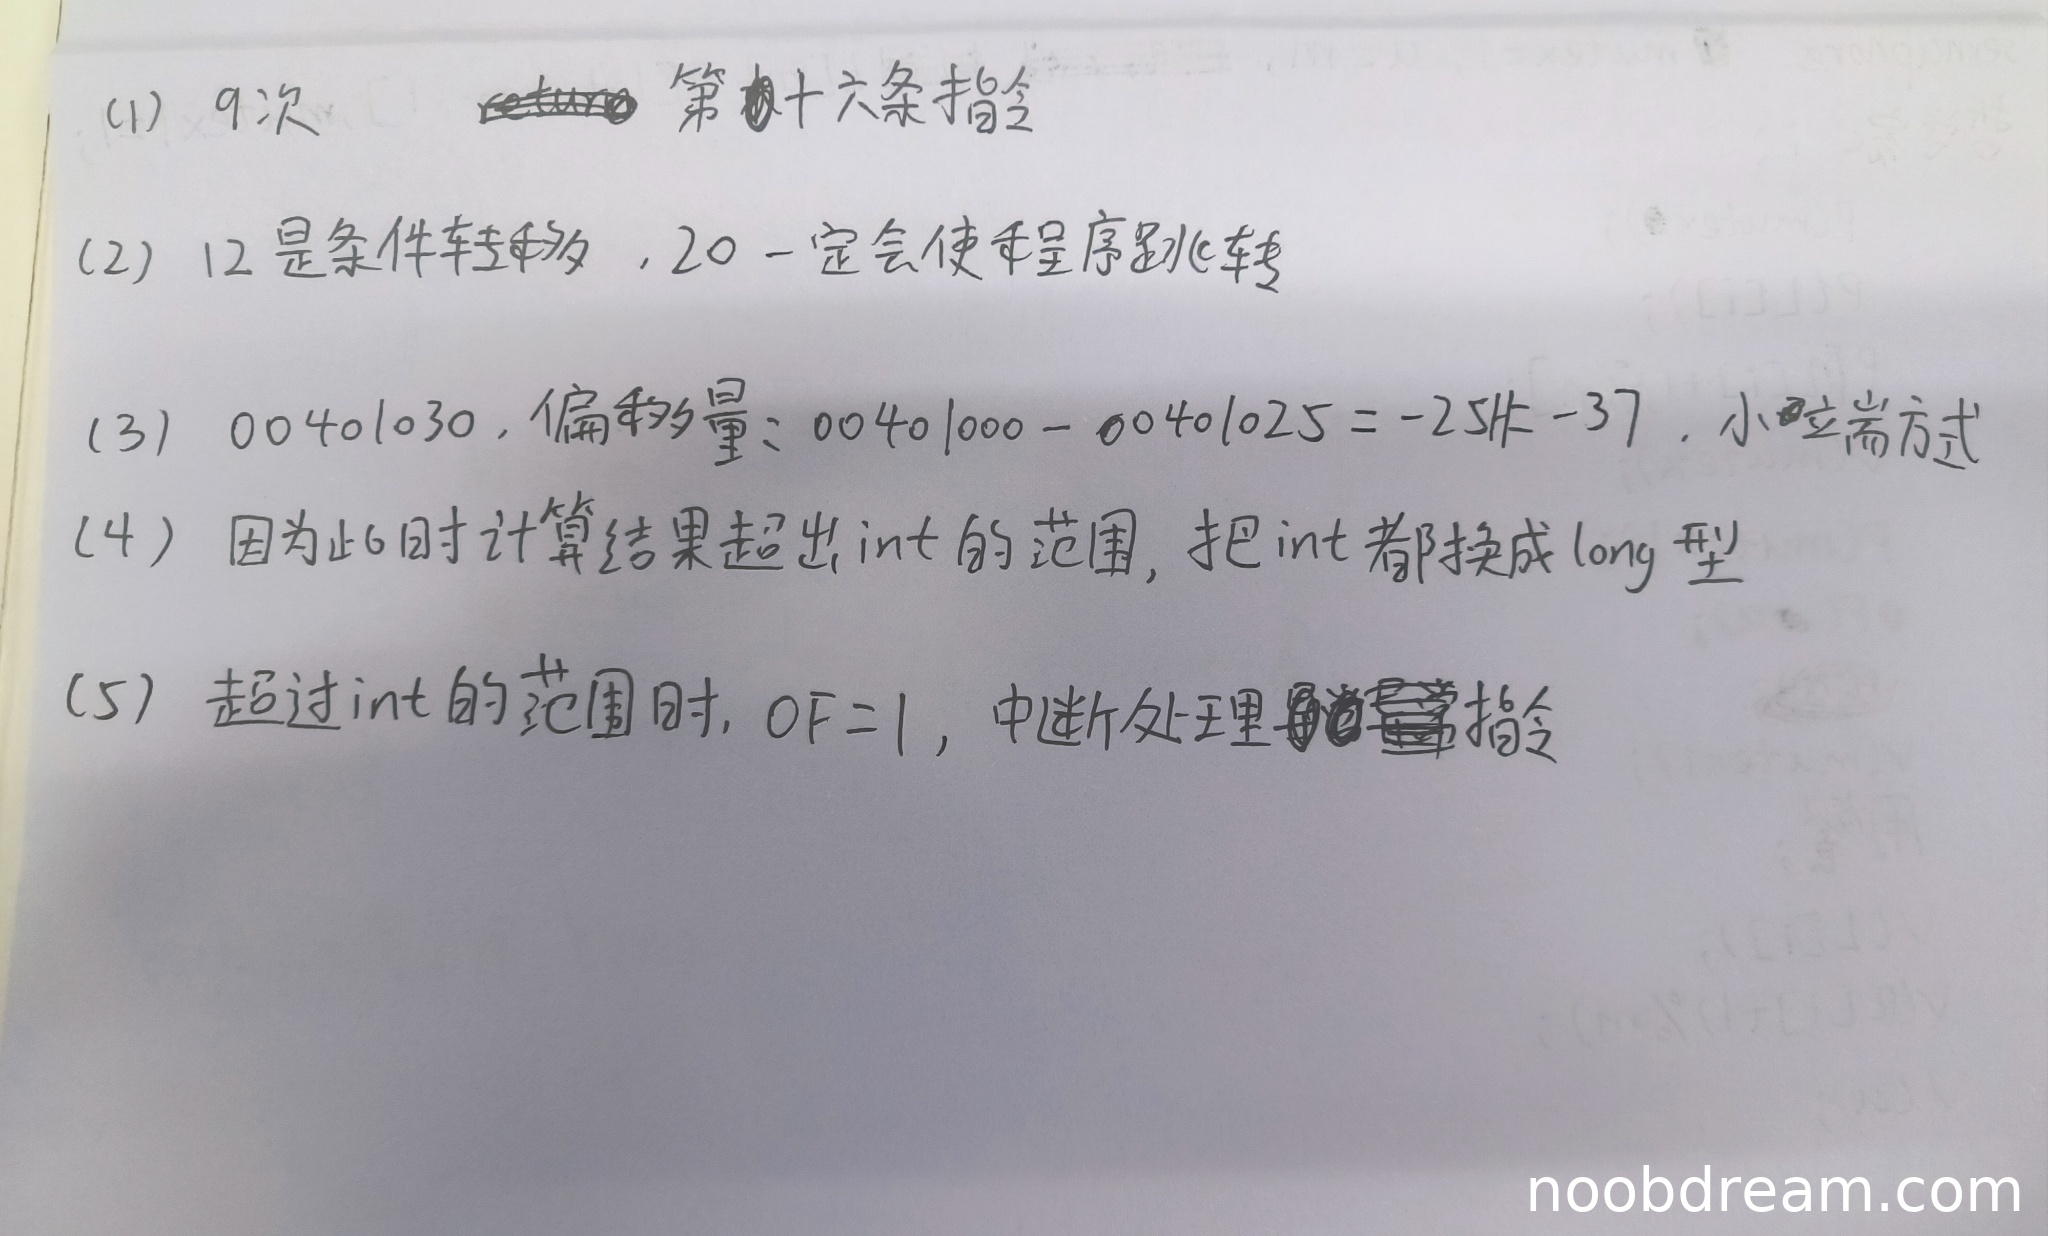 (1) 9次 第十六条指令
(2) 12是条件转移，20一定会使程序跳转
(3) 00401030，偏移量：00401000-00401025=-25H=-37，小端方式
(4) 因为此时计算结果超出int的范围，把int都换成long型
(5) 超过int的范围时，OF=1，中断处理指令
noobdream.com